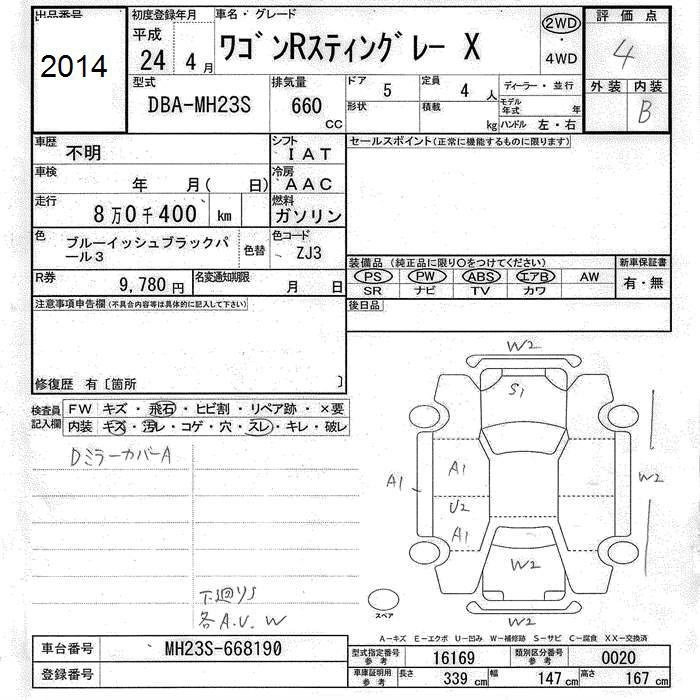 出品番号
2014
初度登録年月
平成
24 4月
車名・グレード
ワゴンRスティングレー X
2WD
・
4WD
評価点
4
外装 内装
B
型式
DBA-MH23S
排気量
660
CC
ドア 5
定員 4 人
形状 積載 kg
ディーラー・並行
モデル年式 年
ハンドル 左・右
車歴
不明
シフト
IAT
セールスポイント(正常に機能するものに限ります)
車検
年 月( 日)
冷房
AAC
走行
8万0千400 km
燃料
ガソリン
色
ブルーイッシュブラックパール3
色替
色コード
ZJ3
装備品 (純正品に限り○をつけてください)
新車保証書
PS PW ABS エアB AW
SR ナビ TV カワ
有・無
R券
9,780 円
名変通知期限
月 日
後日品
注意事項申告欄(不具合内容等は具体的に記入して下さい)
修復歴 有〔箇所 〕
検査員記入欄
FW キズ・飛石・ヒビ割・リペア跡・×要
内装 キズ・汚レ・コゲ・穴・スレ・キレ・破レ
DミラーカバーA
下廻りS
各A.U.W
W2
S1
A1
A1
U2
A1
W2
W2
W2
スペア
A−キズ E−エクボ U−凹み W−補修跡 S−サビ C−腐食 XX−交換済
車台番号 MH23S-668190
登録番号
型式指定番号参考 16169 類別区分番号参考 0020
車庫証明用参考 長さ 339 cm 幅 147 cm 高さ 167 cm